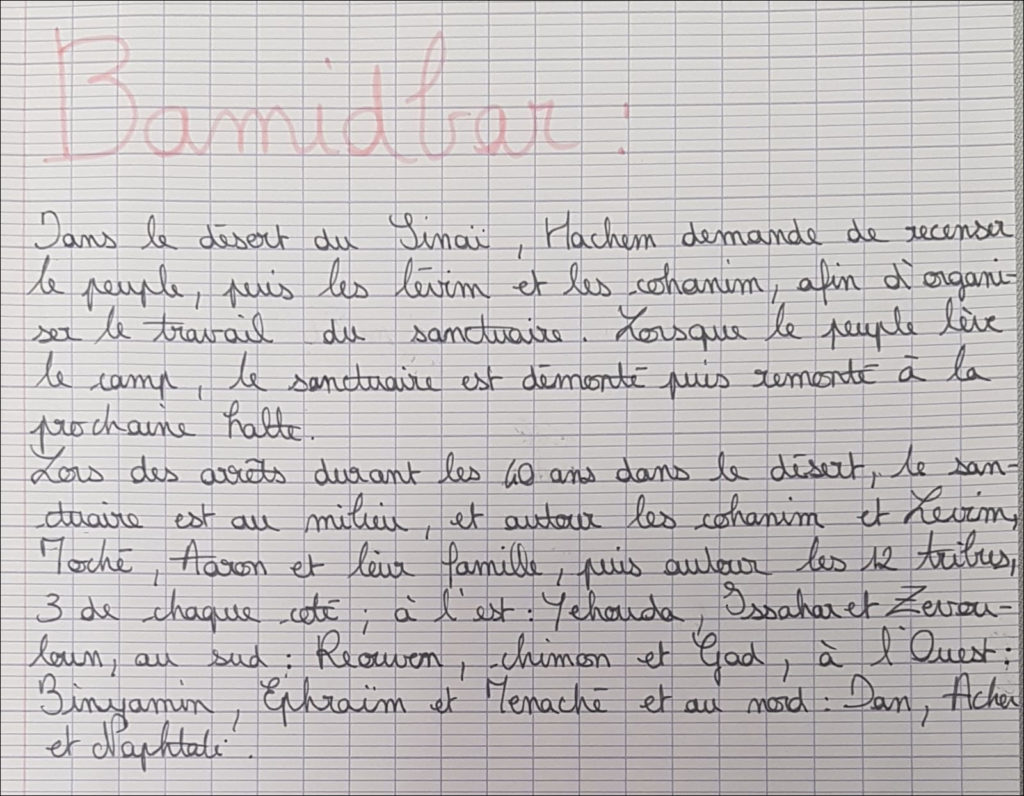 Bamidbar :
Dans le désert du Sinaï, Hachem demande de recenser
le peuple, puis les lévim et les cohanim, afin d'organi-
ser le travail du sanctuaire. Lorsque le peuple lève
le camp, le sanctuaire est démonté puis remonté à la
prochaine halte.
Lors des arrêts durant les 40 ans dans le désert, le san-
ctuaire est au milieu, et autour les cohanim et Levim,
Moché, Aaron et leur famille, puis autour les 12 tribus,
3 de chaque coté ; à l'est : Yehouda, Issahar et Zevou-
loun, au sud : Réouven, chimon et Gad, à l'Ouest :
Binyamin, Ephraïm et Menaché et au nord : Dan, Acher
et Naphtali.